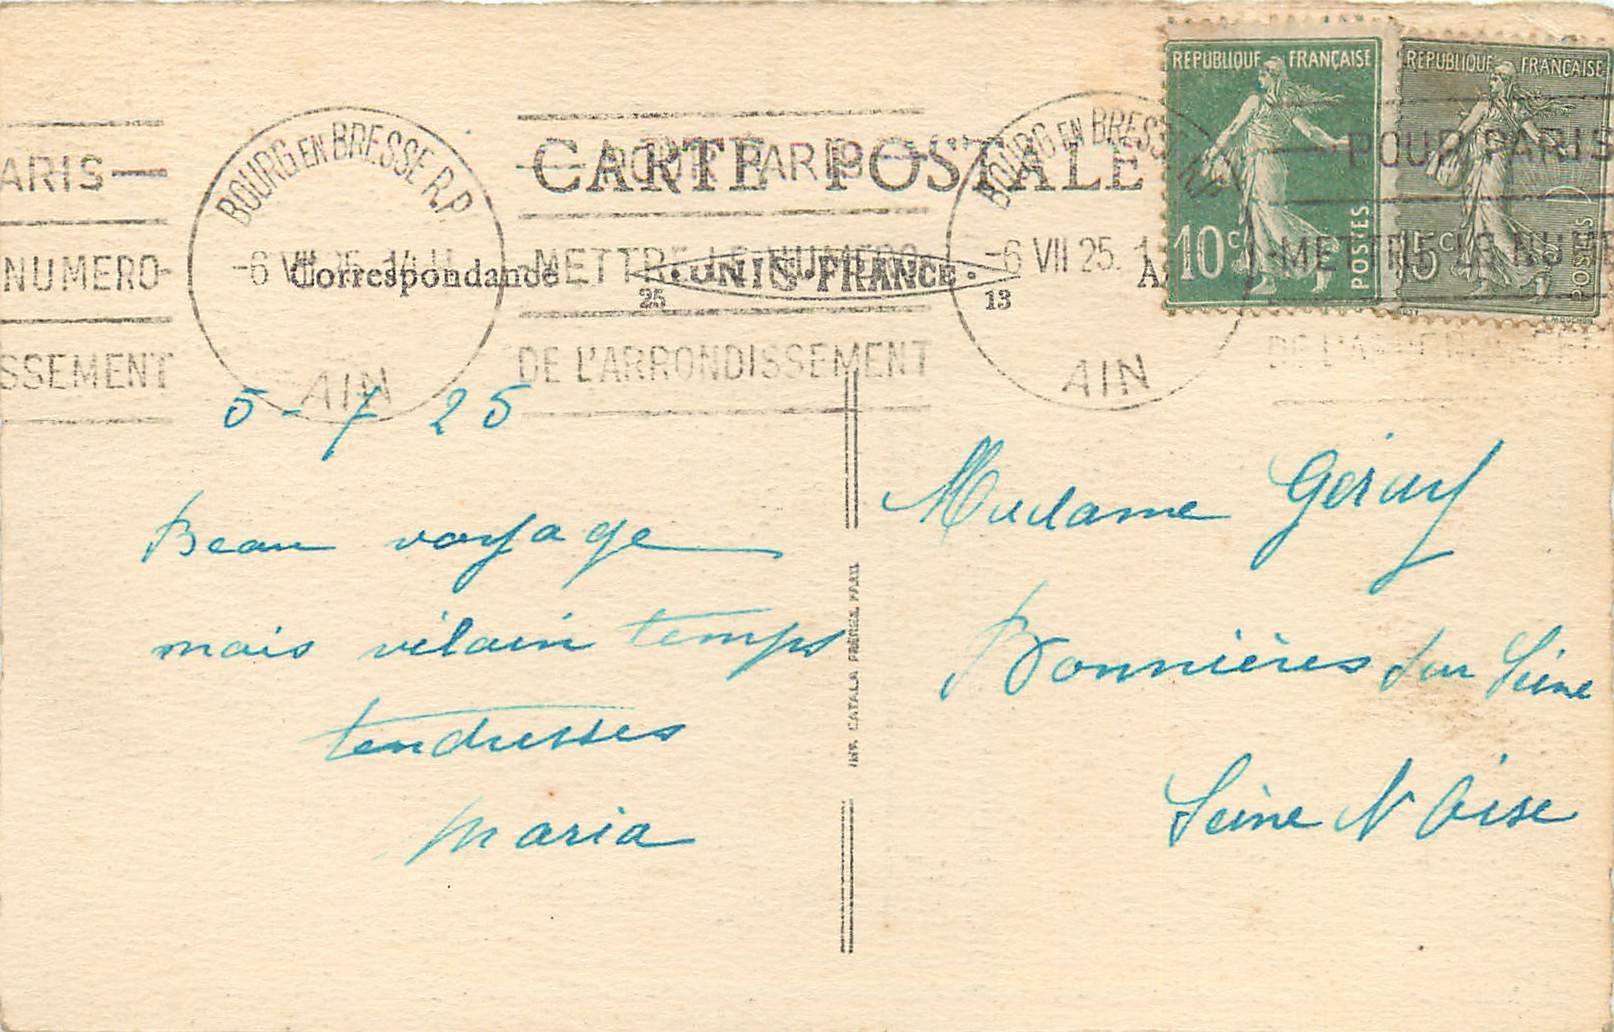 CARTE POSTALE
REPUBLIQUE FRANÇAISE
10 c
POSTES
REPUBLIQUE FRANÇAISE
15 c
POSTES
BOURG EN BRESSE R.P
-6 VII 25. 14 H
AIN
POUR PARIS
METTRE LE NUMERO
DE L'ARRONDISSEMENT
BOURG EN BRESSE R.P
-6 VII 25. 1
AIN
POUR PARIS
METTRE LE NUME
DE L'ARRONDISSE
ARIS
NUMERO
SSEMENT
Correspondance
• UNIS FRANCE •
25 13
A
5 - 7 25
Beau voyage
mais vilain temps
tendresses
Maria
IMP. CATALA FRÈRES, PARIS
Madame
Bonnières sur Seine
Seine & Oise